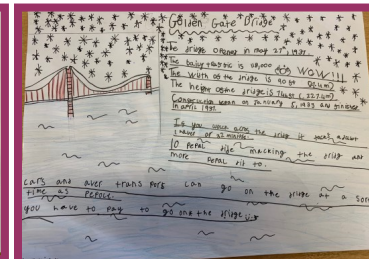 Golden Gate Bridge
The bridge opened in may 27th, 1937.
The daily traffic is 118,000 WOW!!!
The width of the bridge is 90 ft
The height of the bridge is 746ft (227.4m)
Construction began on January 5, 1933 and finished
in april 1937.
If you walk across the bridge it takes
1 hour or 32 minutes.
10 pepal macking the bridg and
more pepal
cars and aver transport can go on the bridge at a
time as
you have to pay to go on the bridge